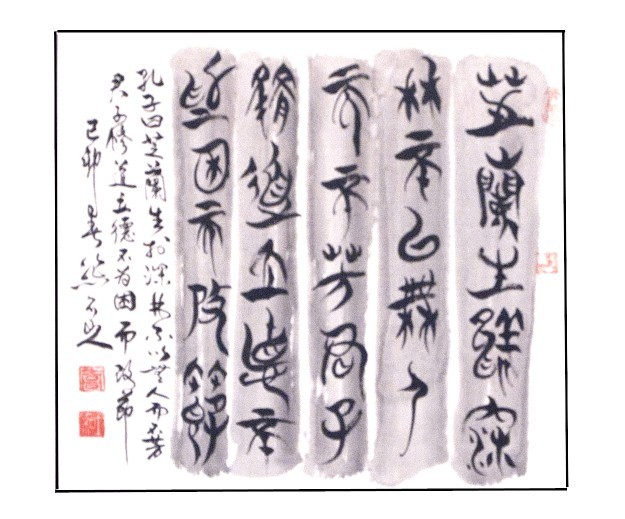 芝蘭生於深
林不以無人
而不芳君子
脩道立德不
為困而改節
孔子曰芝蘭生於深林不以無人而不芳
君子修道立德不為困而改節
己卯春熊